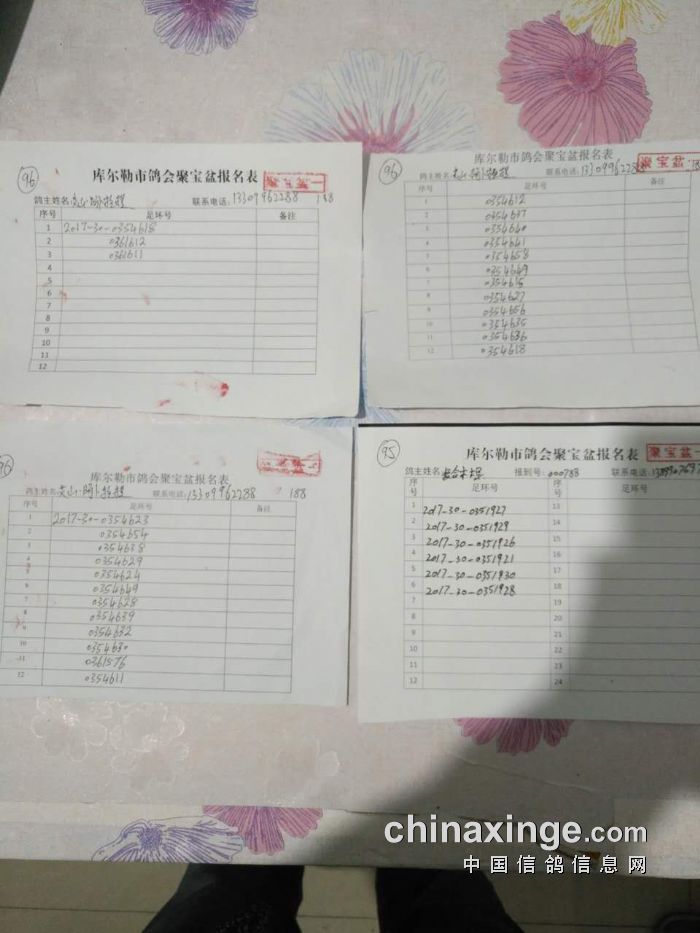 96
库尔勒市鸽会聚宝盆报名表
鸽主姓名 联系电话:13309962288 188
序号 足环号 备注
1 2017-30-0354618
2 0361612
3 0361611
4
5
6
7
8
9
10
11
12
96
库尔勒市鸽会聚宝盆报名表 聚宝盆
鸽主姓名 联系电话:13309962288 188
序号 足环号 备注
1 0354612
2 0354617
3 0354640
4 0354641
5 0354658
6 0354649
7 0354615
8 0354627
9 0354656
10 0354635
11 0354636
12 0354618
96
库尔勒市鸽会聚宝盆报名表
鸽主姓名 联系电话:13309962288 188
序号 足环号 备注
1 2017-30-0354623
2 0354654
3 0354638
4 0354629
5 0354624
6 0354649
7 0354628
8 0354639
9 0354632
10 0354630
11 0361576
12 0354611
95
库尔勒市鸽会聚宝盆报名表 聚宝盆一
鸽主姓名 报到号:000788 联系电话:
序号 足环号 序号 足环号
1 2017-30-0351927 13
2 2017-30-0351929 14
3 2017-30-0351926 15
4 2017-30-0351921 16
5 2017-30-0351930 17
6 2017-30-0351928 18
7 19
8 20
9 21
10 22
11 23
12 24
chinaxinge.com
中国信鸽信息网